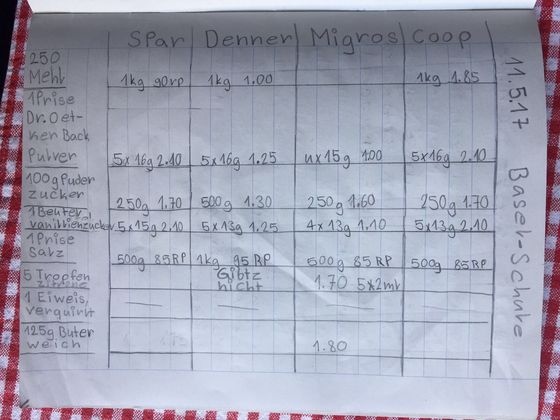 Spar Denner Migros Coop
250
Mehl 1kg 90rp 1kg 1.00 1kg 1.85
1 Prise
Dr. Oet-
ker Back
Pulver 5x16g 2.10 5x16g 1.25 4x15g 1.00 5x16g 2.10
100g Puder
zucker 250g 1.70 500g 1.30 250g 1.60 250g 1.70
1 Beutel
vanillienzucker 5x15g 2.10 5x13g 1.25 4x13g 1.10 5x13g 2.10
1 Prise
Salz 500g 85RP 1kg 95RP 500g 85RP 500g 85RP
5 Tropfen Gibtz 1.70 5x2ml
zitrone nicht
1 Eiweis,
verquirlt
125g Buter
weich 1.80
11.5.17 Basel-Schule